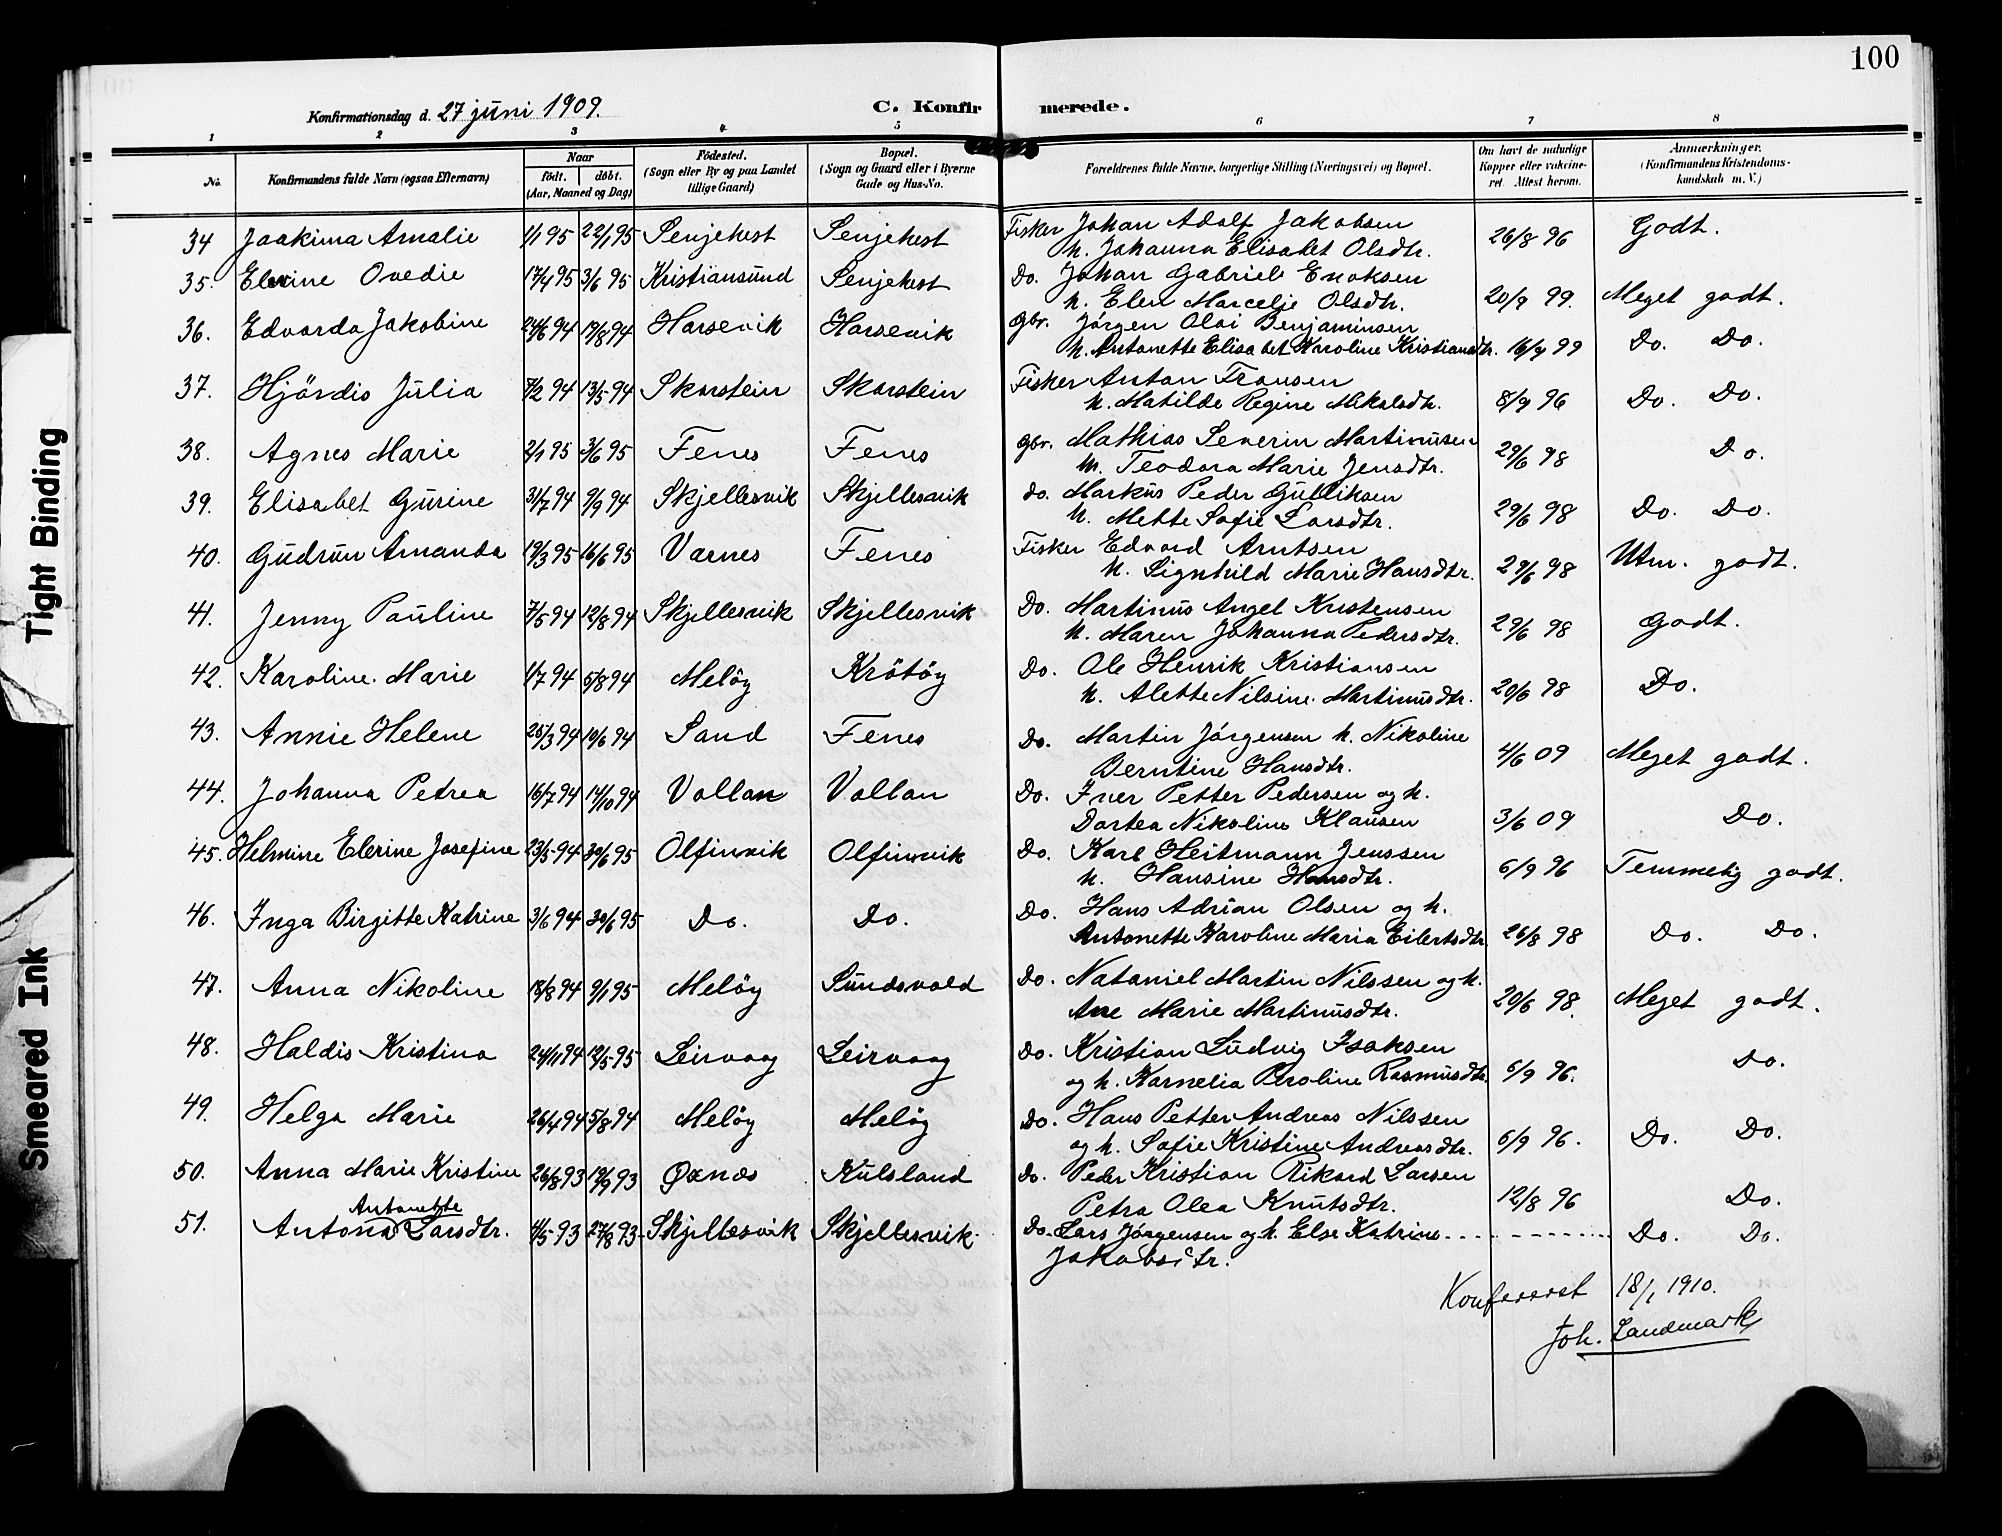 100
Konfirmationsdag d. 27 juni 1909.
C. Konfirmerede.
1 2 3 4 5 6 7 8
No. Konfirmandens fulde Navn (ogsaa Efternavn) Naar født. døbt. (Aar, Maaned og Dag) Fødested. (Sogn eller By og paa Landet tillige Gaard) Bopæl. (Sogn og Gaard eller i Byerne Gade og Hus-No. Forældrenes fulde Navne, borgerlige Stilling (Næringsvei) og Bopæl. Om havt de naturlige Kopper eller vaccineret. Attest herom. Anmærkninger. (Konfirmandens Kristendomskundskab m. V.)
34 Joakima Amalie 1/1 95 22/1 95 Senjehest Senjehest Fisker Johan Adolf Jakobsen 26/8 96 Godt.
h. Johanna Elisabet Olsdtr.
35. Elerine Ovedie 17/4 95 3/6 95 Kristiansund Senjehest Do. Johan Gabriel Enoksen 20/9 99. Meget godt.
h. Elen Marcelje Olsdtr.
36. Edvarda Jakobine 24/6 94 19/8 94 Harsevik Harsevik Gbr. Jørgen Olai Benjaminsen
h. Antonette Elisabet Karoline Kristiansdtr. 16/9 99 Do. Do.
37. Hjördis Julia 7/2 94 13/5 94 Skarstein Skarstein Fisker Anton Fransen
h. Matilde Regine Mikalsdtr. 8/9 96 Do. Do.
38. Agnes Marie 2/1 95 3/6 95 Fenes Fenes Gbr. Mathias Severin Martinusen 29/6 98 Do.
h. Teodora Marie Jensdtr.
39. Elisabet Gurine 31/7 94 9/9 94 Skjellesvik Skjellesvik do. Markus Peder Gulliksen
h. Mette Sofie Larsdtr. 29/6 98 Do. Do.
40. Gudrun Amanda 19/3 95 16/6 95 Varnes Fenes Fisker Edvard Arntsen
h. Signhild Marie Hansdtr. 29/6 98 Utm. godt.
41. Jenny Pauline 7/5 94 12/8 94 Skjellesvik Skjellesvik Do. Martinus Angel Kristensen
h. Maren Johanna Pedersdtr. 29/6 98 Godt.
42. Karoline Marie 1/7 94 5/8 94 Meløy Krötöy Do. Ole Henrik Kristiansen
h. Alette Nilsine Martinusdtr. 20/6 98 Do.
43. Annie Helene 25/3 94 10/6 94 Sand Fenes Do. Martin Jørgensen h. Nikoline
Berntine Hansdtr. 4/6 09 Meget godt.
44. Johanna Petrea 16/7 94 14/10 94 Vallan Vallan Do. Iver Petter Pedersen og h.
Dortea Nikoline Klausen 3/6 09 Do.
45. Helmine Elerine Josefine 23/5 94 30/6 95 Olfinvik Olfinvik Do. Karl Heitmann Jenssen
h. Hansine Hansdtr. 6/9 96 Temmelig godt.
46. Inga Birgitte Katrine 3/6 94 30/6 95 Do. Do. Do. Hans Adrian Olsen og h.
Antonette Karoline Maria Eilertsdtr. 26/8 98 Do. Do.
47. Anna Nikoline 18/8 94 9/1 95 Meløy Sundsvold Do. Nataniel Martin Nilssen og h.
Ane Marie Martinusdtr. 20/6 98. Meget godt.
48. Haldis Kristina 24/11 94 12/5 95 Leirvaag Leirvaag Do. Kristian Ludvig Isaksen
og h. Karnelia Peroline Rasmusdtr. 6/9 96. Do.
49. Helga Marie 26/4 94 5/8 94 Meløy Meløy Do. Hans Petter Andreas Nilssen
og h. Sofie Kristine Andreasdtr. 6/9 96. Do. Do.
50. Anna Marie Kristine 26/8 93 19/9 93 Øxnes Kulsland Do. Peder Kristian Rikard Larsen
Petra Olea Knutsdtr. 12/8 96 Do.
Antonette
51. Antona Larsdtr. 4/5 93 27/8 93 Skjellesvik Skjellesvik Do. Lars Jørgensen og h. Else Katrine Do. Do.
Jakobsdtr.
Konfereret 18/1 1910.
Joh. Landmark
Tight Binding
Smeared Ink